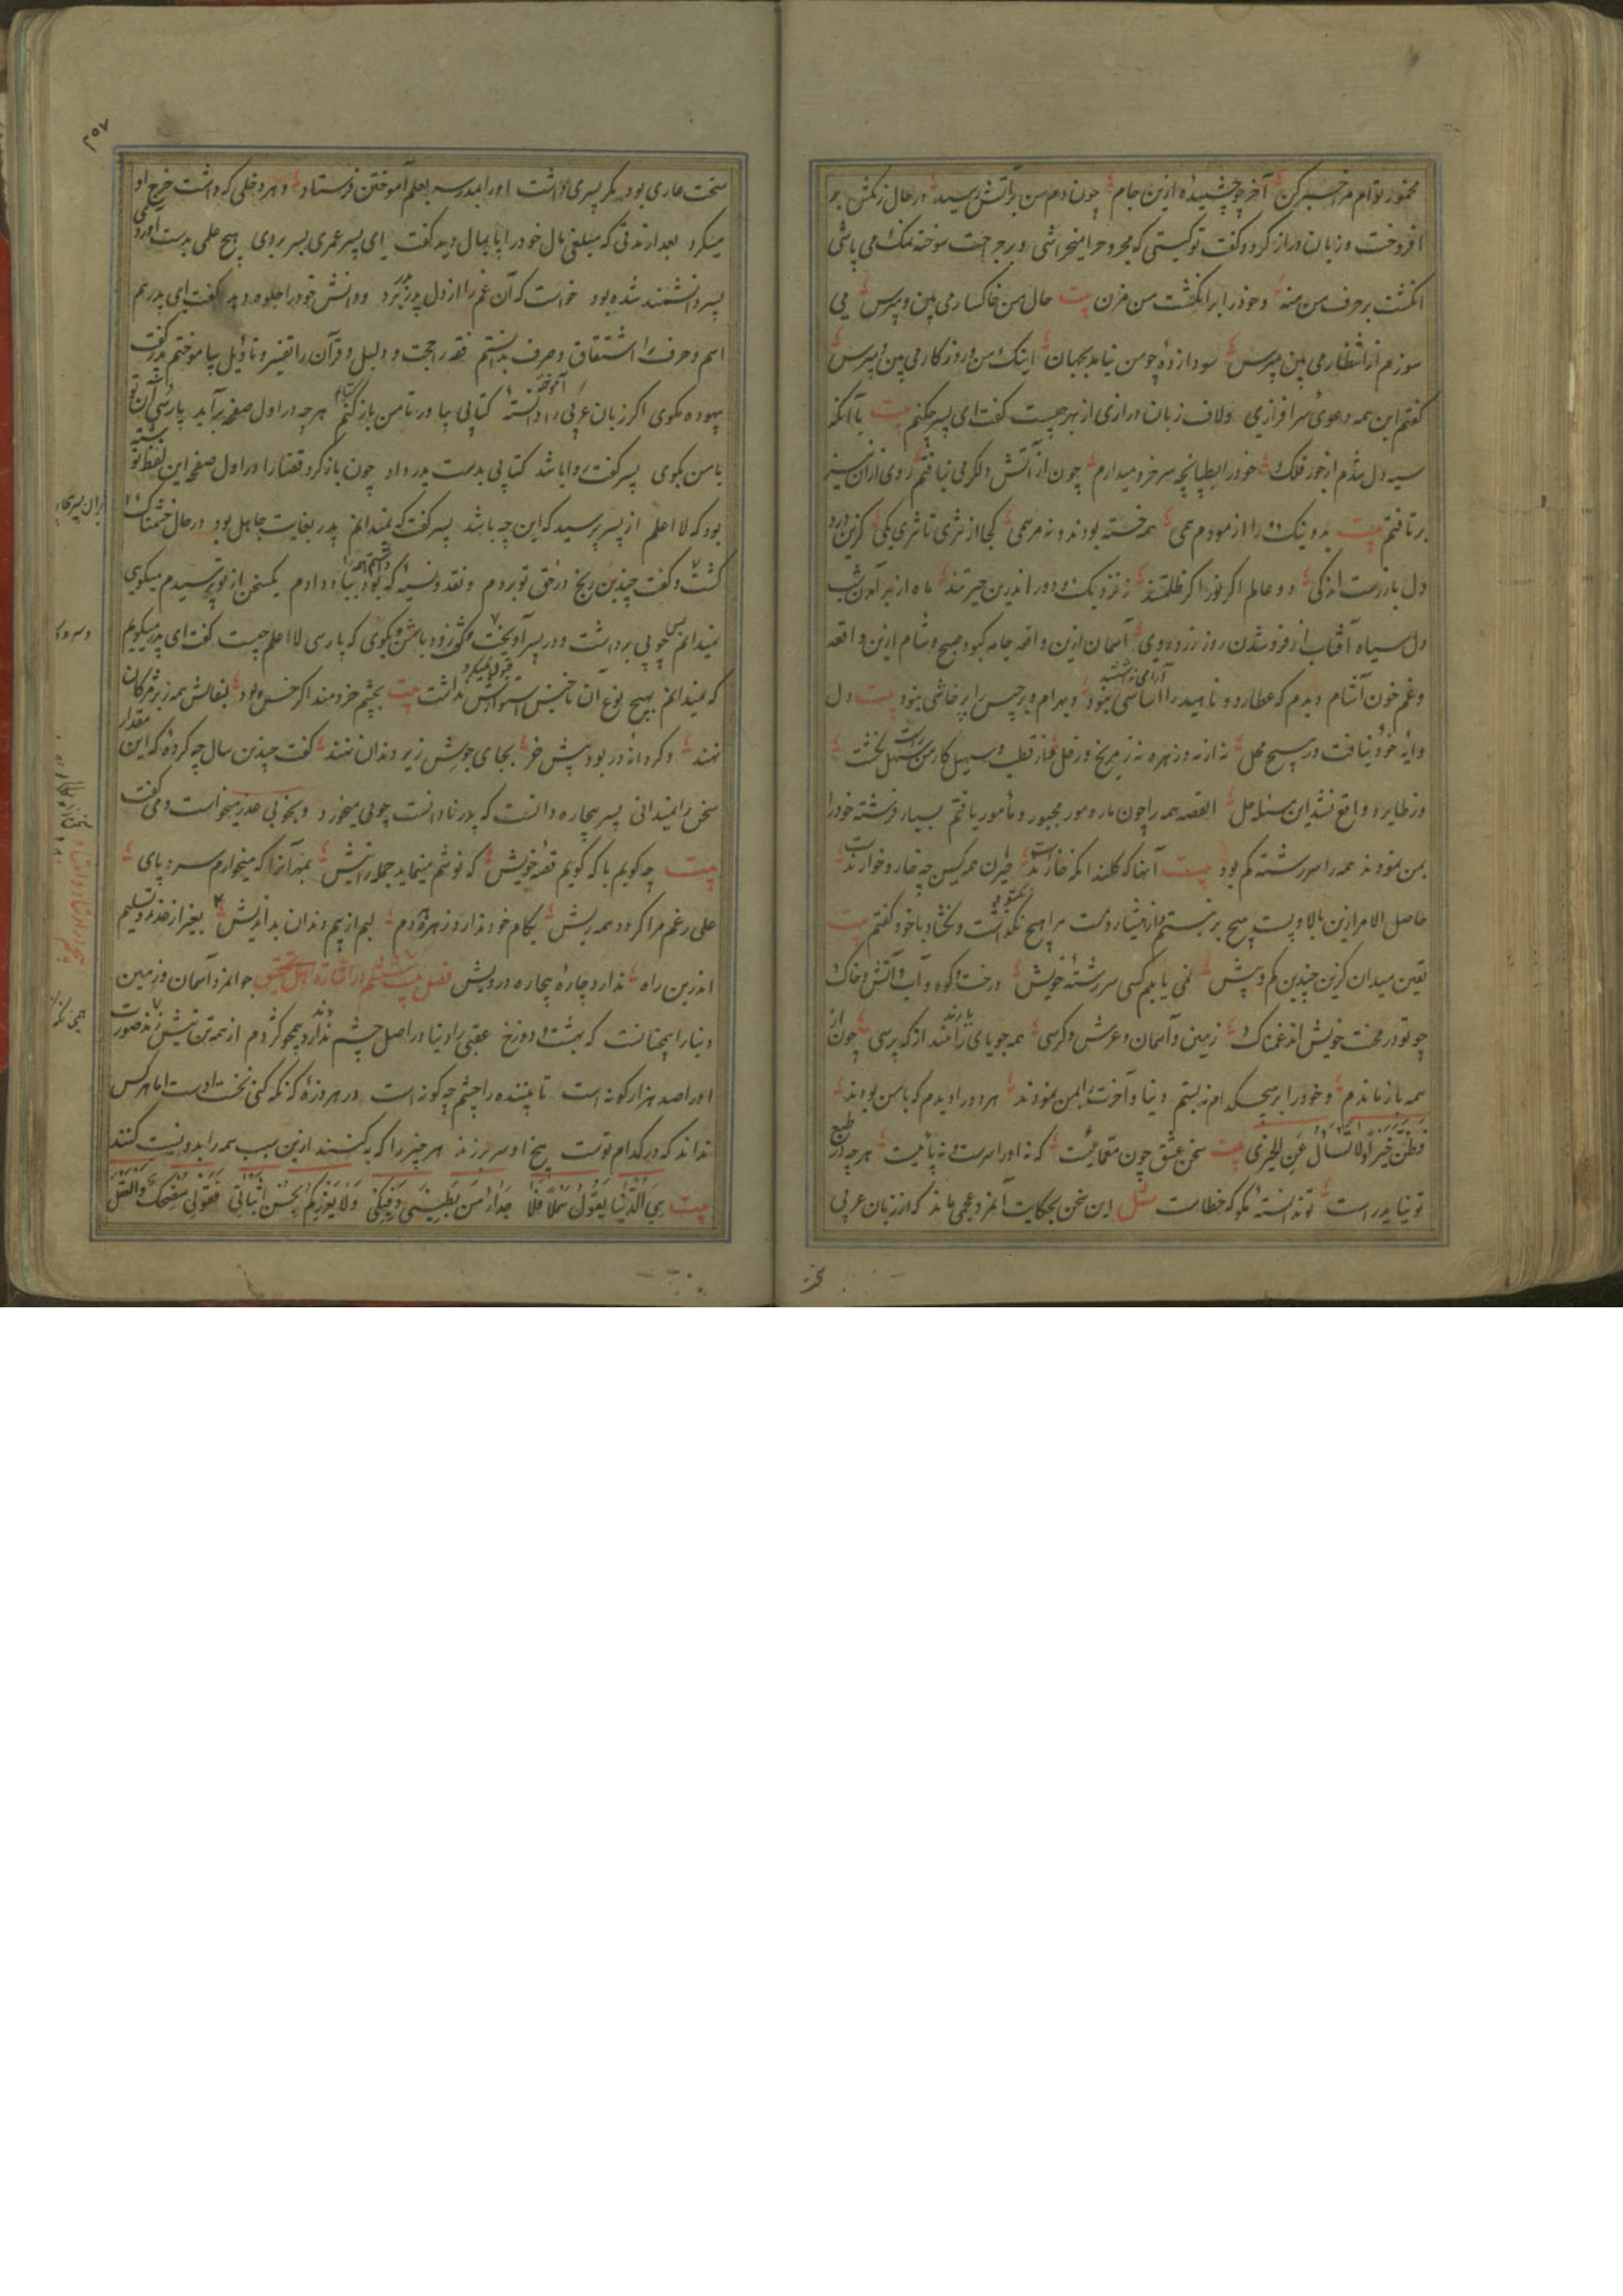 مخمور توام مرا خبر کن آخر چو چشیدهٔ ازین جام چون دم من بر آتش رسید در حال زبانکش بر
افروخت و زبان دراز کرد و گفت تو کیستی که مجروح را میخراشی و بر جراحت سوخته نمک می پاشی
انکشت بر حرف من منه و خود را بر انکشت من مزن بیت حال من خاکسار می بین و مپرس می
سوزم از انتظار می بین مپرس سودا زدهٔ چو من نیابد بجهان اینک من و روزکار می بین و مپرس
کفتم این همه دعوی سر افرازی و لاف زبان درازی از بهر چیست کفت ای پسر چکنم بیت با آنکه
سیه دل شدم از جور فلک خود را بطپانچه سرخرو میدارم چون از آتش دلکرمی نیافتم روی ازان نیز
بر تافتم بیت بد و نیک را از مودم همی همه خسته بودند و نه مرهمی کجا از ثری تا ثریا یکی کزین درد
دل باز رست اندکی دو عالم اکر نور اکر ظلمتند ز نزدیک و دور اندرین حیرتند ماه از بر آمدن شب
دل سیاه آفتاب از فرو شدن روز زرد روی آسمان ازین واقعه جامه کبود صبح و شام ازین واقعه
آرامی نداشتند
و غم خون آشام دیدم که عطارد و ناهید را اساسی نبود و بهرام و برجیس را پرخاشی نبود بیت دل
دایهٔ خود نیافت در هیچ محل نه از مه و زهره نه ز مریخ و زحل نه از قطب و سهیل کار من سهل کشت
وز طایر و واقع نشد این مسئله حل القصه همه را چون مار و مور مجبور و مأمور یافتم بسیار فرشته خود را
بمن نمودند همه را سر رشته کم بود بیت آنها که کلند انکه خارند حیران همه کیس چه خار و خوارند
حاصل الامر ازین بالا و پست هیچ بر نبستم مرا هیچ نکشود و نکشاد با خود کفتم بیت
یقین میدان کزین چندین کم و بیش نمی یابم کسی سر رشتهٔ خویش درخت و کوه و آب و آتش و خاک
چو تو در محنت خویش اند غمناک زمین و آسمان و عرش و کرسی همه جویای رازند از که پرسی چون از
همه باز ماندم و خود را بر هیچکدام نه بستم دنیا و آخرت را بمن نمودند هر دو را دیدم که با من بودند
فظن خیرا ولا تسأل عن الخبر بیت سخن عشق چون معمائیست که نه او را سرست نه پائیست هر چه در طبع
تو نیاید راست تو ندانستهٔ مکو که خطاست مثل این سخن بحکایت آنمرد عجمی ماند که از زبان عربی
سخت عاری بود مکر پسری داشت او را بمدرسه بعلم آموختن فرستاد و هر دخلی که داشت خرج او
میکرد بعد از مدتی که مبلغی مال خود را پایمال دید کفت ای پسر عمری بسر بردی هیچ علمی بدست آوردی
پسر دانشمند شده بود خواست که آن غم را از دل پدر ببرد و دانش خود را جلوه دهد کفت ای پدر هم
اسم و حرف را اشتقاق و صرف بدانستم فقه را حجت و دلیل و قرآن را تفسیر و تأویل بیاموختم پدر کفت
بیهوده مکوی اکر زبان عربی را دانستهٔ کتابی بیاور تا من باز کنم هر چه در اول صفحه بر آید پارسی آن
با من بکوی پسر کفت روا باشد کتابی بدست پدر داد چون باز کرد قضا را در اول صفحه این لفظ نوشته
بود که لا اعلم از پسر پرسید که این چه باشد پسر کفت که نمیدانم پدر بغایت جاهل بود در حال خشمناک
کشت و کفت چندین رنج در حق تو بردم و نقد و نسیه که بود بباد دادم یکسخن از تو پرسیدم میکویی
نمیدانم پس چوبی برداشت و در پسر آویخت و کفت زود باش و بکوی که پارسی لا اعلم چیست کفت ای پدر میکویم
که نمیدانم بهیچ نوع آن ناجنس استوارش نداشت بیت بچشم خردمند اکر خس بود بنعالش همه زر مژکان
نهند و کر دانه در بود پیش خر بجای جوش زیر دندان نهند کفت چندین سال چه کردهٔ که این مقدار
سخن را نمیدانی پسر بیچاره دانست که پدر نادانست چوبی میخورد و بخوبی عذر میخواست و می کفت
بیت چه کویم با که کویم قصهٔ خویش که نوشم مینماید جمله را نیش بهر آنرا که میخوارم سر و پای
علی رغم مرا کردد همه ریش بکام خود ندارد زهره کامم لبم از بیم دندان بد اندیش بغیر از عذر و تسلیم
اندرین راه ندارد چارهٔ بیچاره درویش فصل بیست ششم در اشارت اهل تحقیق جوانمردا آسمان و زمین
دنیا را همچنانست که بهشت و دوزخ عقبی را دنیا در اصل چشم ندارد و همچو کژدم از همه تن نیش زند صورت
او را صد هزار کونه است تا بیننده را چشم چه کونه است در هر ذرهٔ که نکه کنی نخست اوست اما هر کس
نداند که در کدام توست بیخ او سر بر زند هر چیز را که به کنند ازین سبب همه را بدو نسبت کنند
بیت هی الدنیا یقول بملأ فیها حذار من بطشی و فتکی ولا یغررکم حسن ابتسامی فقولی مضحک والفعل